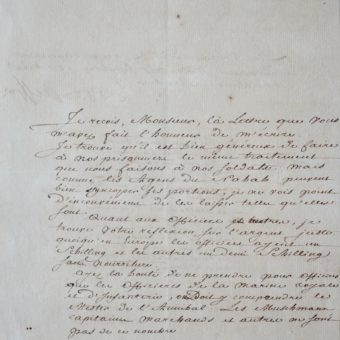 Je reçois, Monsieur, la Lettre que vous
m'avez fait l'honneur de m'écrire.
Je trouve qu'il est bien généreux de faire
à nos prisonniers le même traitement
que nous faisons à nos soldats, mais
comme les agens du Nabab peuvent
bien les portions, je ne vois point
d'inconvenient de les laisser telles qu'elles
sont. Quant aux Officiers et autre, je
trouve votre reflexion sur l'argent juste
quoiqu'en Europe les officiers ayent un
Schilling et les autres un demi Schilling
sans nourriture.
ayez la bonté de ne prendre pour officiers
que les Officiers de la marine royale
et d'Infanterie, on doit y comprendre le
Mestre de l'Annibal. Les
capitaines marchands et autres ne sont
pas de ce nombre